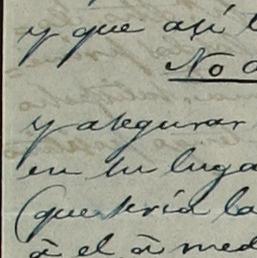 y que así
No
y asegurar
en su luga
(que sería la
á el á med